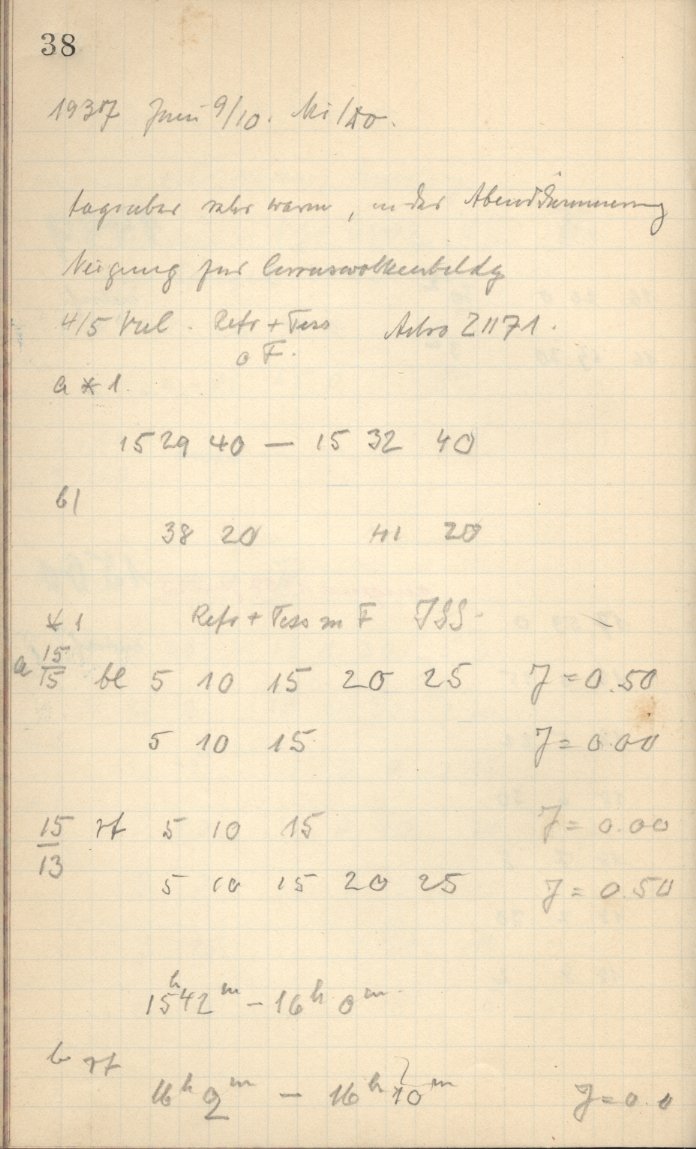 38
1937 Juni 9/10. Mi/Do.
tagsüber sehr warm, in der Abenddämmerung
Neigung zur Cirruswolkenbildg
4/5 Vul. Refr + Tess Astro Z 1171.
o F.
a * 1.
15 29 40 — 15 32 40
b)
38 20 41 20
* 1 Refr + Tess m F ISS
a 15/15 bl 5 10 15 20 25 J = 0.50
5 10 15 J = 0.00
15/13 rt 5 10 15 J = 0.00
5 10 15 20 25 J = 0.50
15h 42m – 16h 0m
b rt
16h 9m — 16h 10m J = 0.0